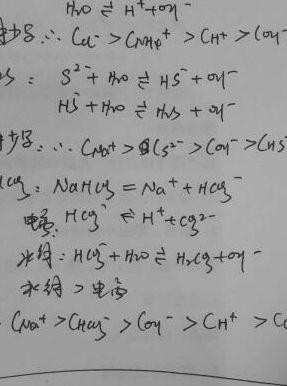 H₂O ⇌ H⁺+OH⁻
∴ CCl⁻ > CNH₄⁺ > CH⁺ > COH⁻
S: S²⁻+H₂O ⇌ HS⁻+OH⁻
HS⁻+H₂O ⇌ H₂S+OH⁻
∴ CNa⁺ > CS²⁻ > COH⁻ > CHS
HCO₃: NaHCO₃ = Na⁺+HCO₃⁻
电离: HCO₃⁻ ⇌ H⁺+CO₃²⁻
水解: HCO₃⁻+H₂O ⇌ H₂CO₃+OH⁻
水解 > 电离
CNa⁺ > CHCO₃⁻ > COH⁻ > CH⁺ > C